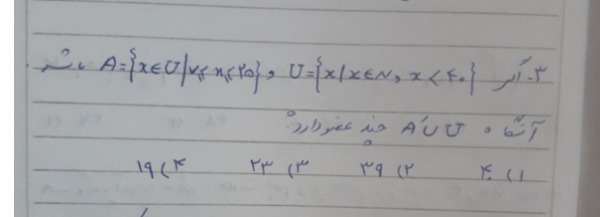 ۳. اگر U={x|x∈N, x<۴۰} و A={x∈U|۷≤x≤۲۵} باشد.
آنگاه A′∪U چند عضو دارد؟
۱) ۴۰ ۲) ۳۹ ۳) ۲۳ ۴) ۱۹